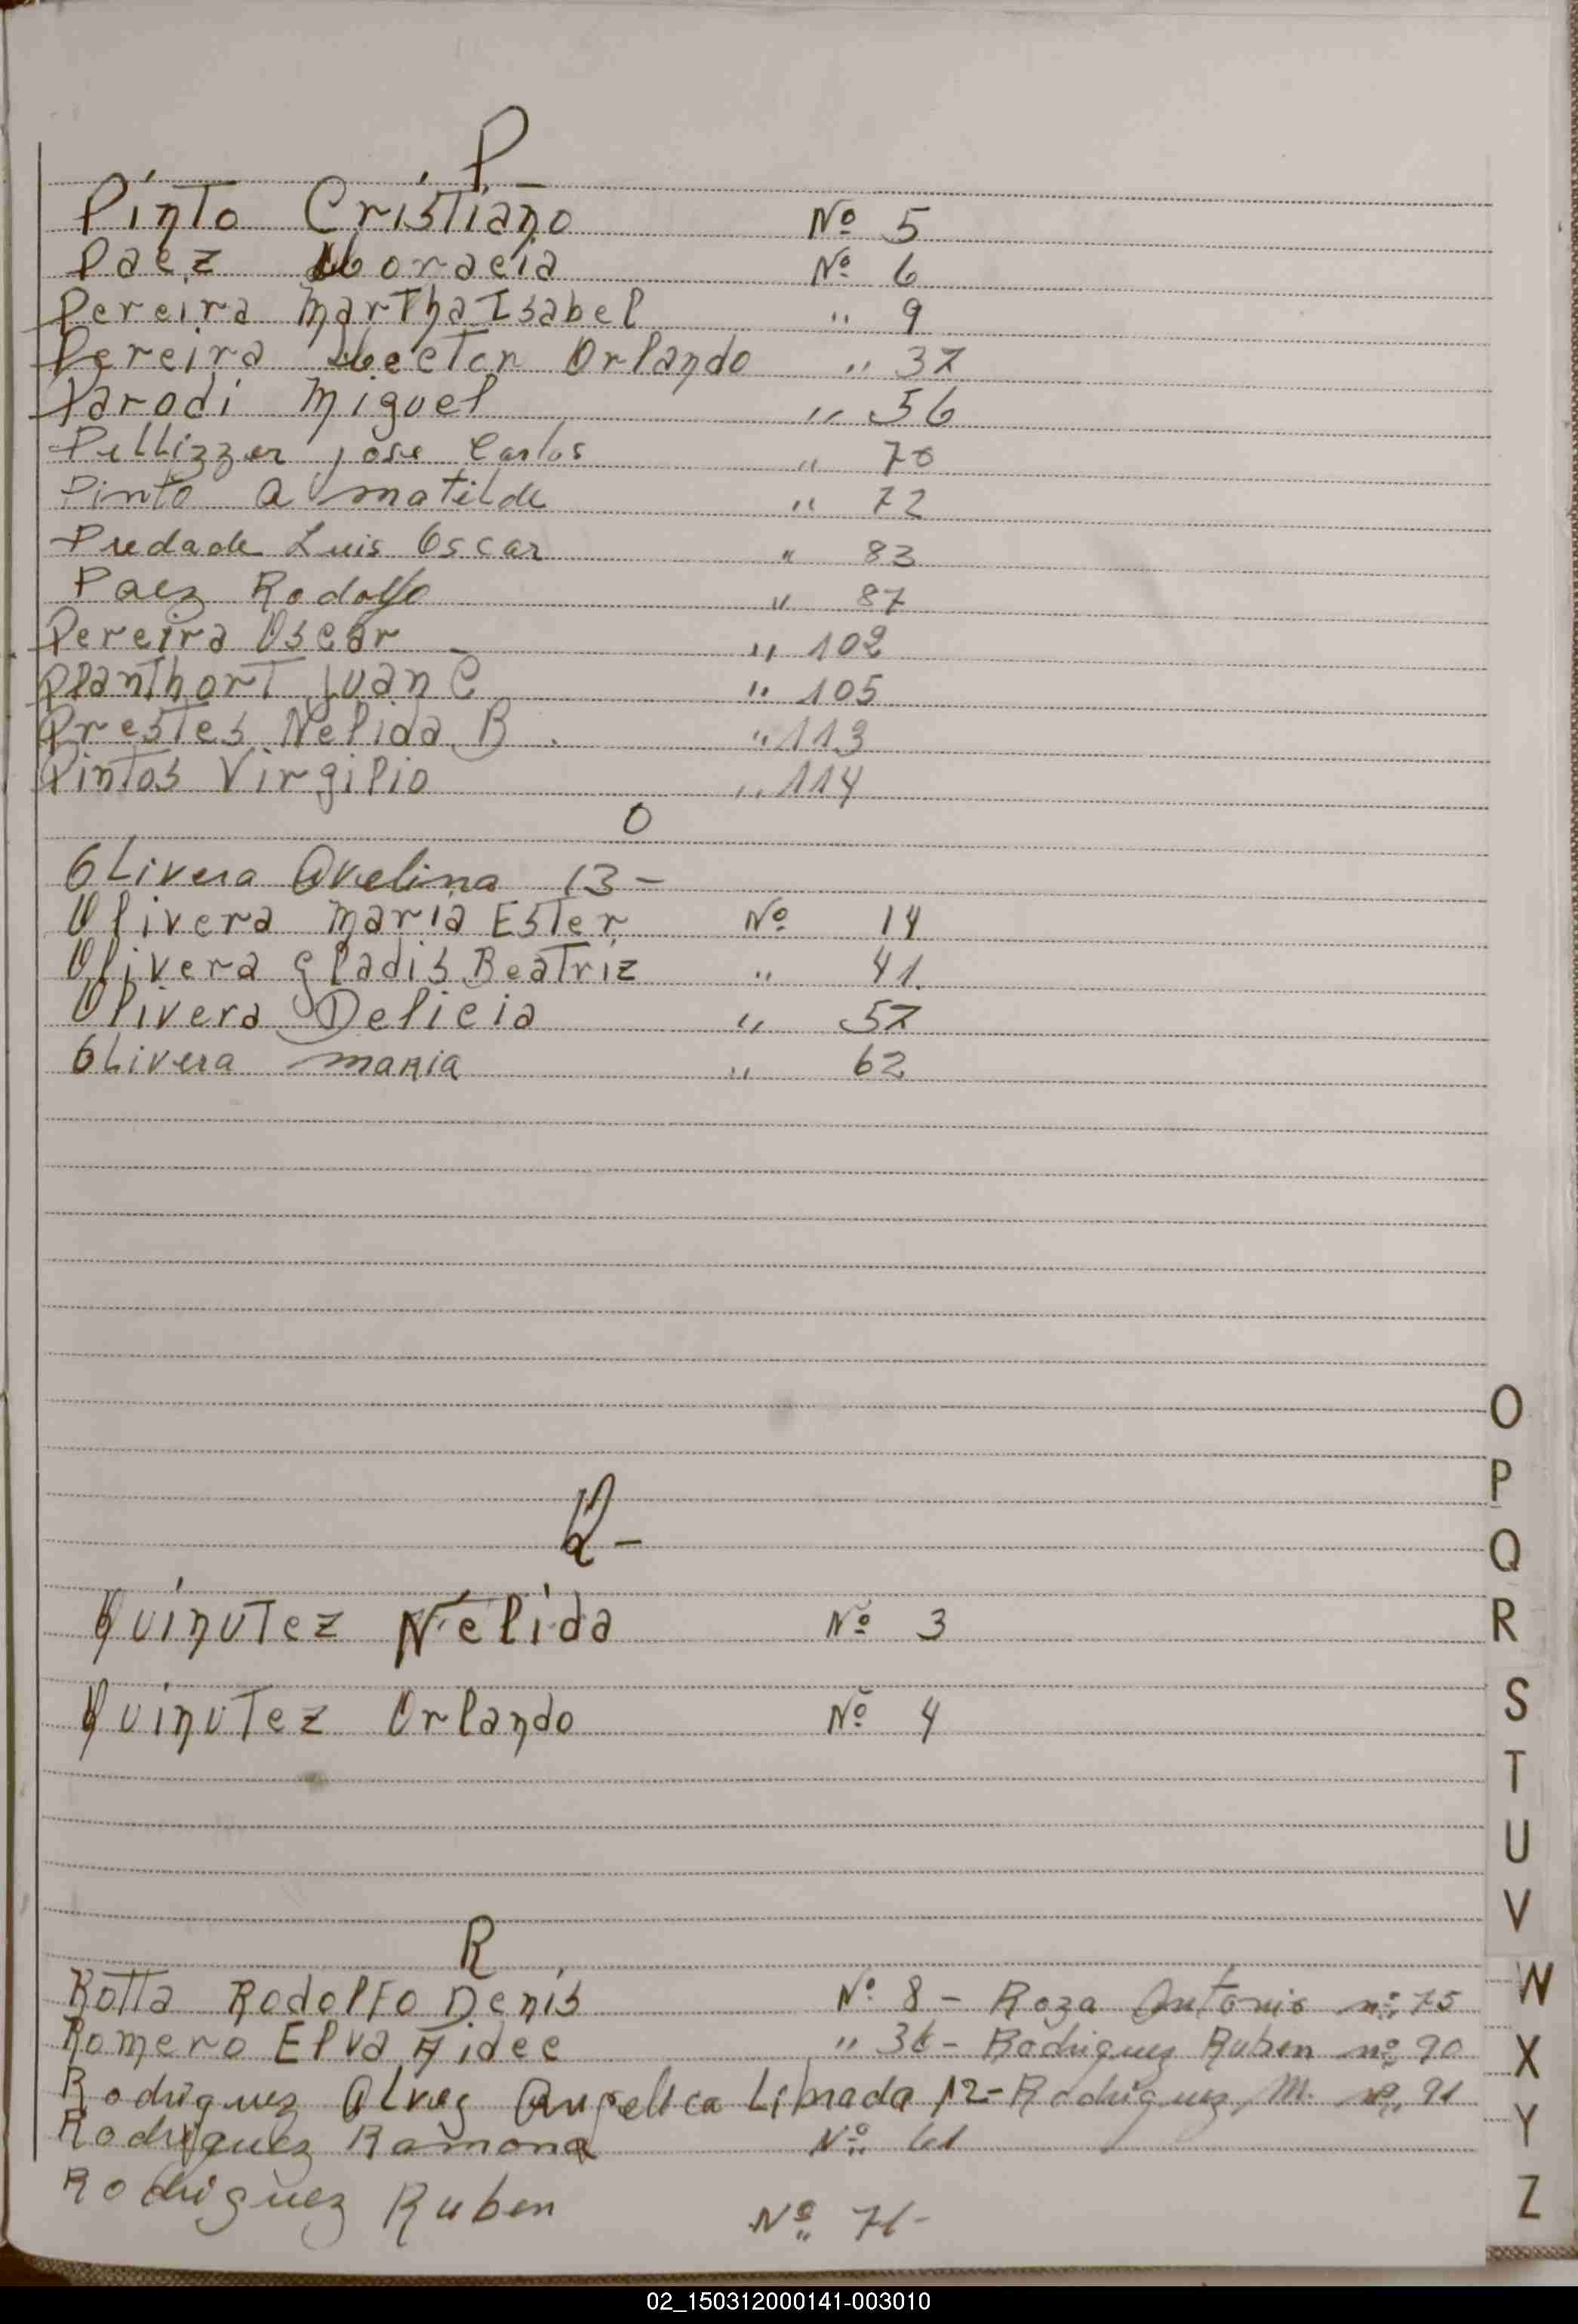 P-
Pinto Cristiano Nº 5
Paez Horacia Nº 6
Pereira Martha Isabel " 9
Pereira Hector Orlando " 37
Parodi Miguel " 56
Pellizzer Jose Carlos " 70
Pinto A Matilde " 72
Piedade Luis Oscar " 83
Paez Rodolfo " 87
Pereira Oscar " 102
Planthort Juan C " 105
Prestes Nelida B. " 113
Pintos Virgilio " 114
O
Olivera Avelina 13-
Olivera Maria Ester Nº 14
Olivera Gladis Beatriz " 41.
Olivera Delicia " 57
Olivera Maria " 62
Q-
Quinutez Nélida Nº 3
Quinutez Orlando Nº 4
R
Rotta Rodolfo Denis Nº 8 - Roza Antonio nº 75
Romero Elva Aidee " - Rodriguez Ruben nº 90
Rodriguez Alvez Angelica Librada 12- Rodriguez M. nº 91
Rodriguez Ramona Nº 61
Rodriguez Ruben Nº 71-
O
P
Q
R
S
T
U
V
W
X
Y
Z
02_150312000141-003010